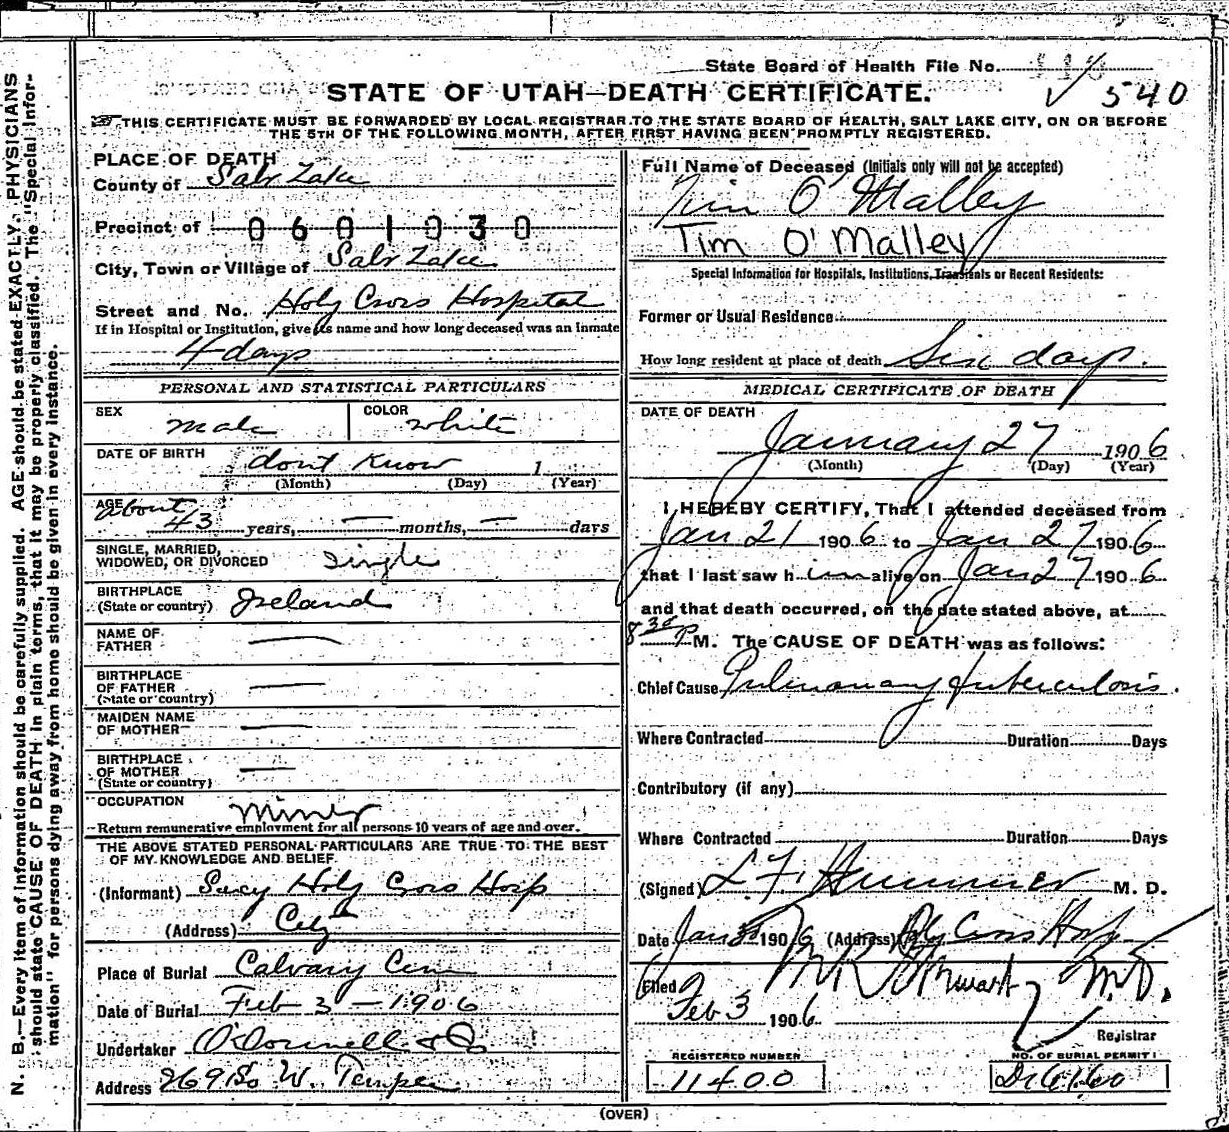 State Board of Health File No.
540
STATE OF UTAH—DEATH CERTIFICATE.
THIS CERTIFICATE MUST BE FORWARDED BY LOCAL REGISTRAR TO THE STATE BOARD OF HEALTH, SALT LAKE CITY, ON OR BEFORE
THE 5TH OF THE FOLLOWING MONTH, AFTER FIRST HAVING BEEN PROMPTLY REGISTERED.
PLACE OF DEATH
County of Salt Lake
Precinct of 0601030
City, Town or Village of Salt Lake
Street and No. Holy Cross Hospital
If in Hospital or Institution, give its name and how long deceased was an inmate
4 days
PERSONAL AND STATISTICAL PARTICULARS
SEX male COLOR white
DATE OF BIRTH dont know 1
(Month) (Day) (Year)
AGE about 43 years, — months, — days
SINGLE, MARRIED,
WIDOWED, OR DIVORCED Single
BIRTHPLACE
(State or country) Ireland
NAME OF
FATHER —
BIRTHPLACE
OF FATHER —
(State or country)
MAIDEN NAME
OF MOTHER —
BIRTHPLACE
OF MOTHER —
(State or country)
OCCUPATION Miner
Return remunerative employment for all persons 10 years of age and over.
THE ABOVE STATED PERSONAL PARTICULARS ARE TRUE TO THE BEST
OF MY KNOWLEDGE AND BELIEF.
(Informant) Holy Cross Hosp
(Address) City
Place of Burial Calvary Cem
Date of Burial Feb 3 – 1906
Undertaker O'Donnell & Co
Address 269 So W. Temple
Full Name of Deceased (Initials only will not be accepted)
Tim O'Malley
Tim O'Malley
Special Information for Hospitals, Institutions, Transients or Recent Residents:
Former or Usual Residence
How long resident at place of death Six days.
MEDICAL CERTIFICATE OF DEATH
DATE OF DEATH
January 27 1906
(Month) (Day) (Year)
I HEREBY CERTIFY, That I attended deceased from
Jan 21 1906 to Jan 27 1906
that I last saw him alive on Jan 27 1906
and that death occurred, on the date stated above, at
8 30 P M. The CAUSE OF DEATH was as follows:
Chief Cause Pulmonary tuberculosis.
Where Contracted Duration Days
Contributory (if any)
Where Contracted Duration Days
(Signed) L F Hummer M. D.
Date Jan 1906 (Address) Holy Cross Hosp
Filed M.D.
Feb 3 1906
Registrar
REGISTERED NUMBER
11400
NO. OF BURIAL PERMIT
(OVER)
N. B.—Every item of information should be carefully supplied. AGE should be stated EXACTLY. PHYSICIANS
should state CAUSE OF DEATH in plain terms, that it may be properly classified. The "Special Infor-
mation" for persons dying away from home should be given in every instance.